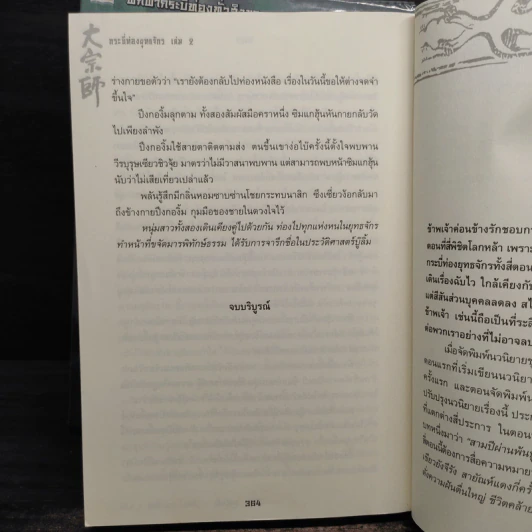 大宗師
กระบี่ท่องยุทธจักร เล่ม 2
ร่างกายขอตัวว่า "เรายังต้องกลับไปท่องหนังสือ เรื่องในวันนี้ขอให้ต่างจดจำ
ขึ้นใจ"
ปึงกองิ้มลุกตาม ทั้งสองสัมผัสมือคราหนึ่ง ซิมแกฮุ้นหันกายกลับวัด
ไปเพียงลำพัง
ปึงกองิ้มใช้สายตาติดตามส่ง ตนขึ้นเขาง่อไบ๊ครั้งนี้ตั้งใจพบพาน
วีรบุรุษเซียวชิวจุ้ย มาตรว่าไม่มีวาสนาพบพาน แต่สามารถพบหน้าซิมแกฮุ้น
นับว่าไม่เสียเที่ยวเปล่าแล้ว
พลันรู้สึกมีกลิ่นหอมซาบซ่านโชยกระทบนาสิก ซึงเซี่ยวง้อกลับมา
ถึงข้างกายปึงกองิ้ม กุมมือของชายในดวงใจไว้
หนุ่มสาวทั้งสองเดินเคียงคู่ไปด้วยกัน ท่องไปทุกแห่งหนในยุทธจักร
ทำหน้าที่ขจัดมารพิทักษ์ธรรม ได้รับการจารึกชื่อในประวัติศาสตร์บู๊ลิ้ม
จบบริบูรณ์
384
ข้าพเจ้าค่อนข้างรักชอบกา
ตอนที่สี่พิชิตโลกหล้า เพราะ
กระบี่ท่องยุทธจักรทั้งสี่ตอน
เดินเรื่องฉับไว ใกล้เคียงกับ
แต่สีสันส่วนบุคคลลดลง
ข้าพเจ้า เช่นนี้ถือเป็นที่ระลึ
ต่อพวกเราอย่างที่ไม่อาจลบ
เมื่อจัดพิมพ์นวนิยายชุ
ตอนแรกที่เริ่มเขียนนวนิย
ครั้งแรก และตอนจัดพิมพ์
ปรับปรุงนวนิยายเรื่องนี้
ที่แตกต่างสี่ประการ ในตอน
บทหนึ่งมาว่า "สามปีผ่านพ้น
สี่ตอนนี้ต้องการสื่อความหมาย
ดั่งความฝันตื่นใหญ่ ชีวิตคล้าย